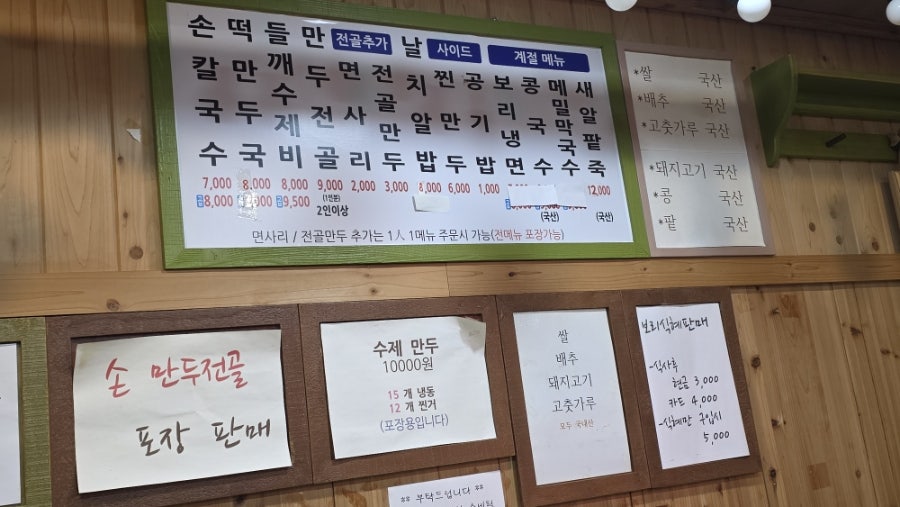 손칼국수
떡만두국
들깨수제비
만두전골
전골추가
면사리
전골만두
날치알밥
사이드
찐만두
공기밥
계절 메뉴
보리냉면
콩국수
메밀막국수
새알팥죽
7,000 8,000 8,000 9,000 2,000 3,000 8,000 6,000 1,000 12,000
8,000 9,500 (1인분) (국산) (국산)
2인이상
면사리 / 전골만두 추가는 1人 1메뉴 주문시 가능(전메뉴 포장가능)
*쌀 국산
*배추 국산
*고춧가루 국산
*돼지고기 국산
*콩 국산
*팥 국산
손 만두전골
포장 판매
수제 만두
10000원
15 개 냉동
12 개 찐거
(포장용입니다)
쌀
배추
돼지고기
고춧가루
모두 국내산
보리식혜판매
-식사후
현금 3,000
카드 4,000
-식혜만 구입시
5,000
** 부탁드립니다 **